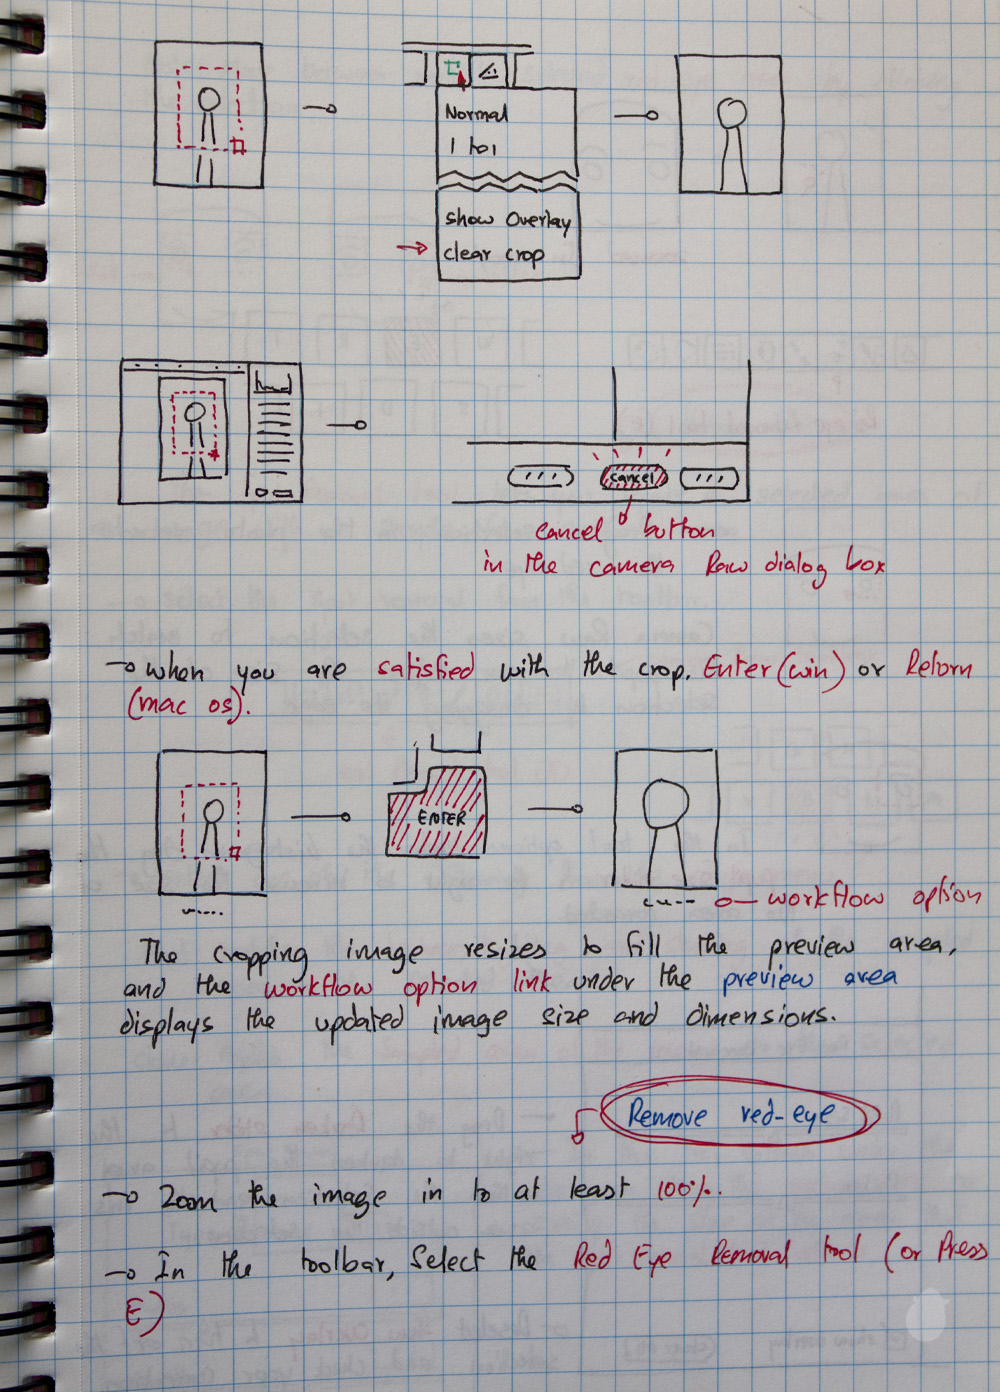 Normal
1 to 1
show Overlay
clear crop
cancel
cancel button
in the camera Raw dialog box
when you are satisfied with the crop. Enter (win) or Return
(mac os).
ENTER
workflow option
The cropping image resizes to fill the preview area,
and the workflow option link under the preview area
displays the updated image size and dimensions.
Remove red-eye
Zoom the image in to at least 100%.
In the toolbar, Select the Red Eye Removal tool (or Press
E)